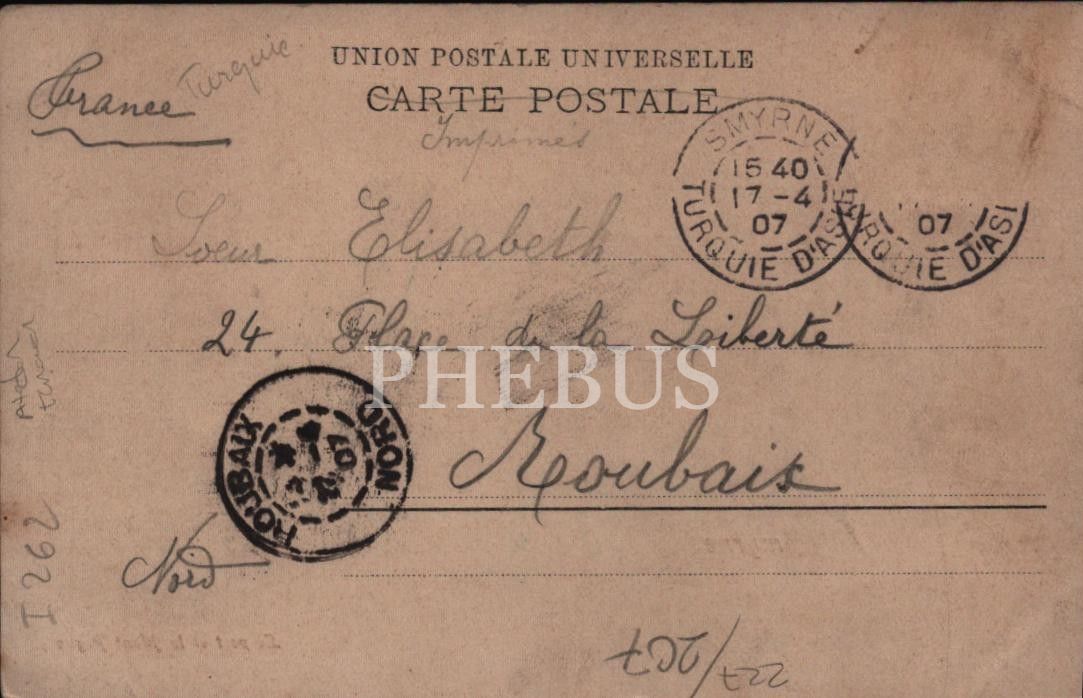 UNION POSTALE UNIVERSELLE
CARTE POSTALE
France
Turquie
Imprimés
SMYRNE
15 40
17-4
07
TURQUIE D'ASIE
07
TURQUIE D'ASI
Soeur Elisabeth
24. Place de la Liberté
PHEBUS
Roubaix
ROUBAIX
07
NORD
Nord
I 262